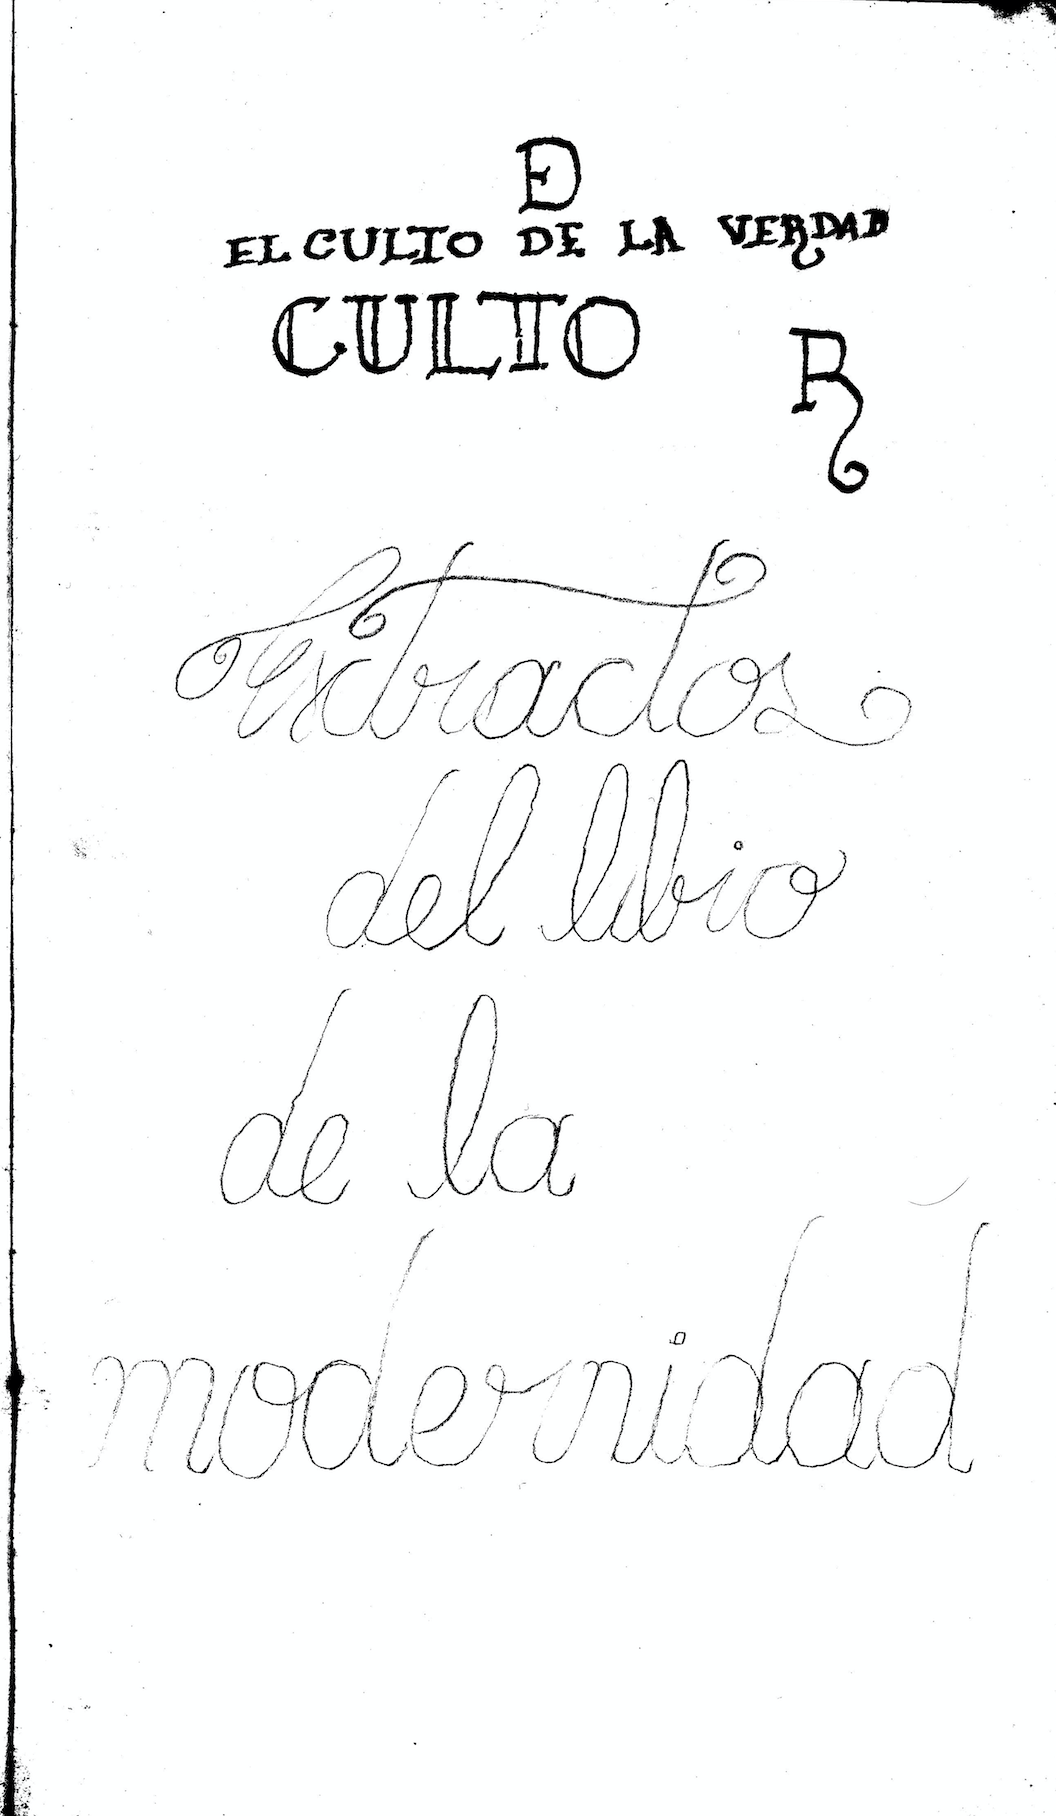 D
EL CULTO DE LA VERDAD
CULTO R
Extractos
del libro
de la
modernidad